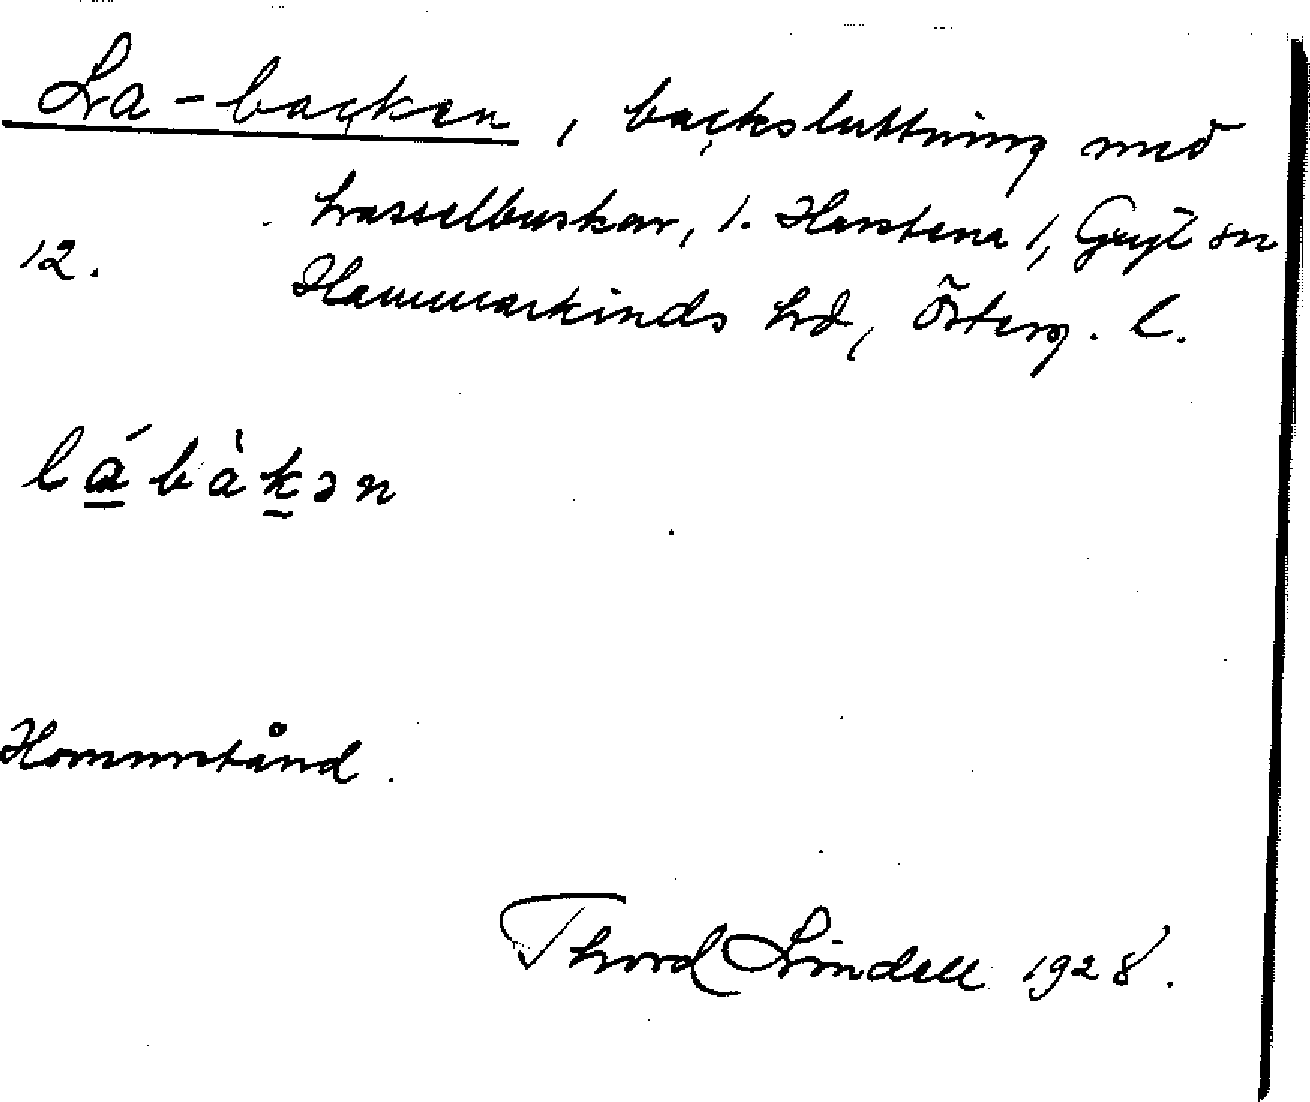 La-backen, backsluttning med
hasselbuskar, 1. Harstena 1, Gryt sn
12.
Hammarkinds hd, Österg. l.
lábàkən
Hommstånd.
Thord Lindell 1928.